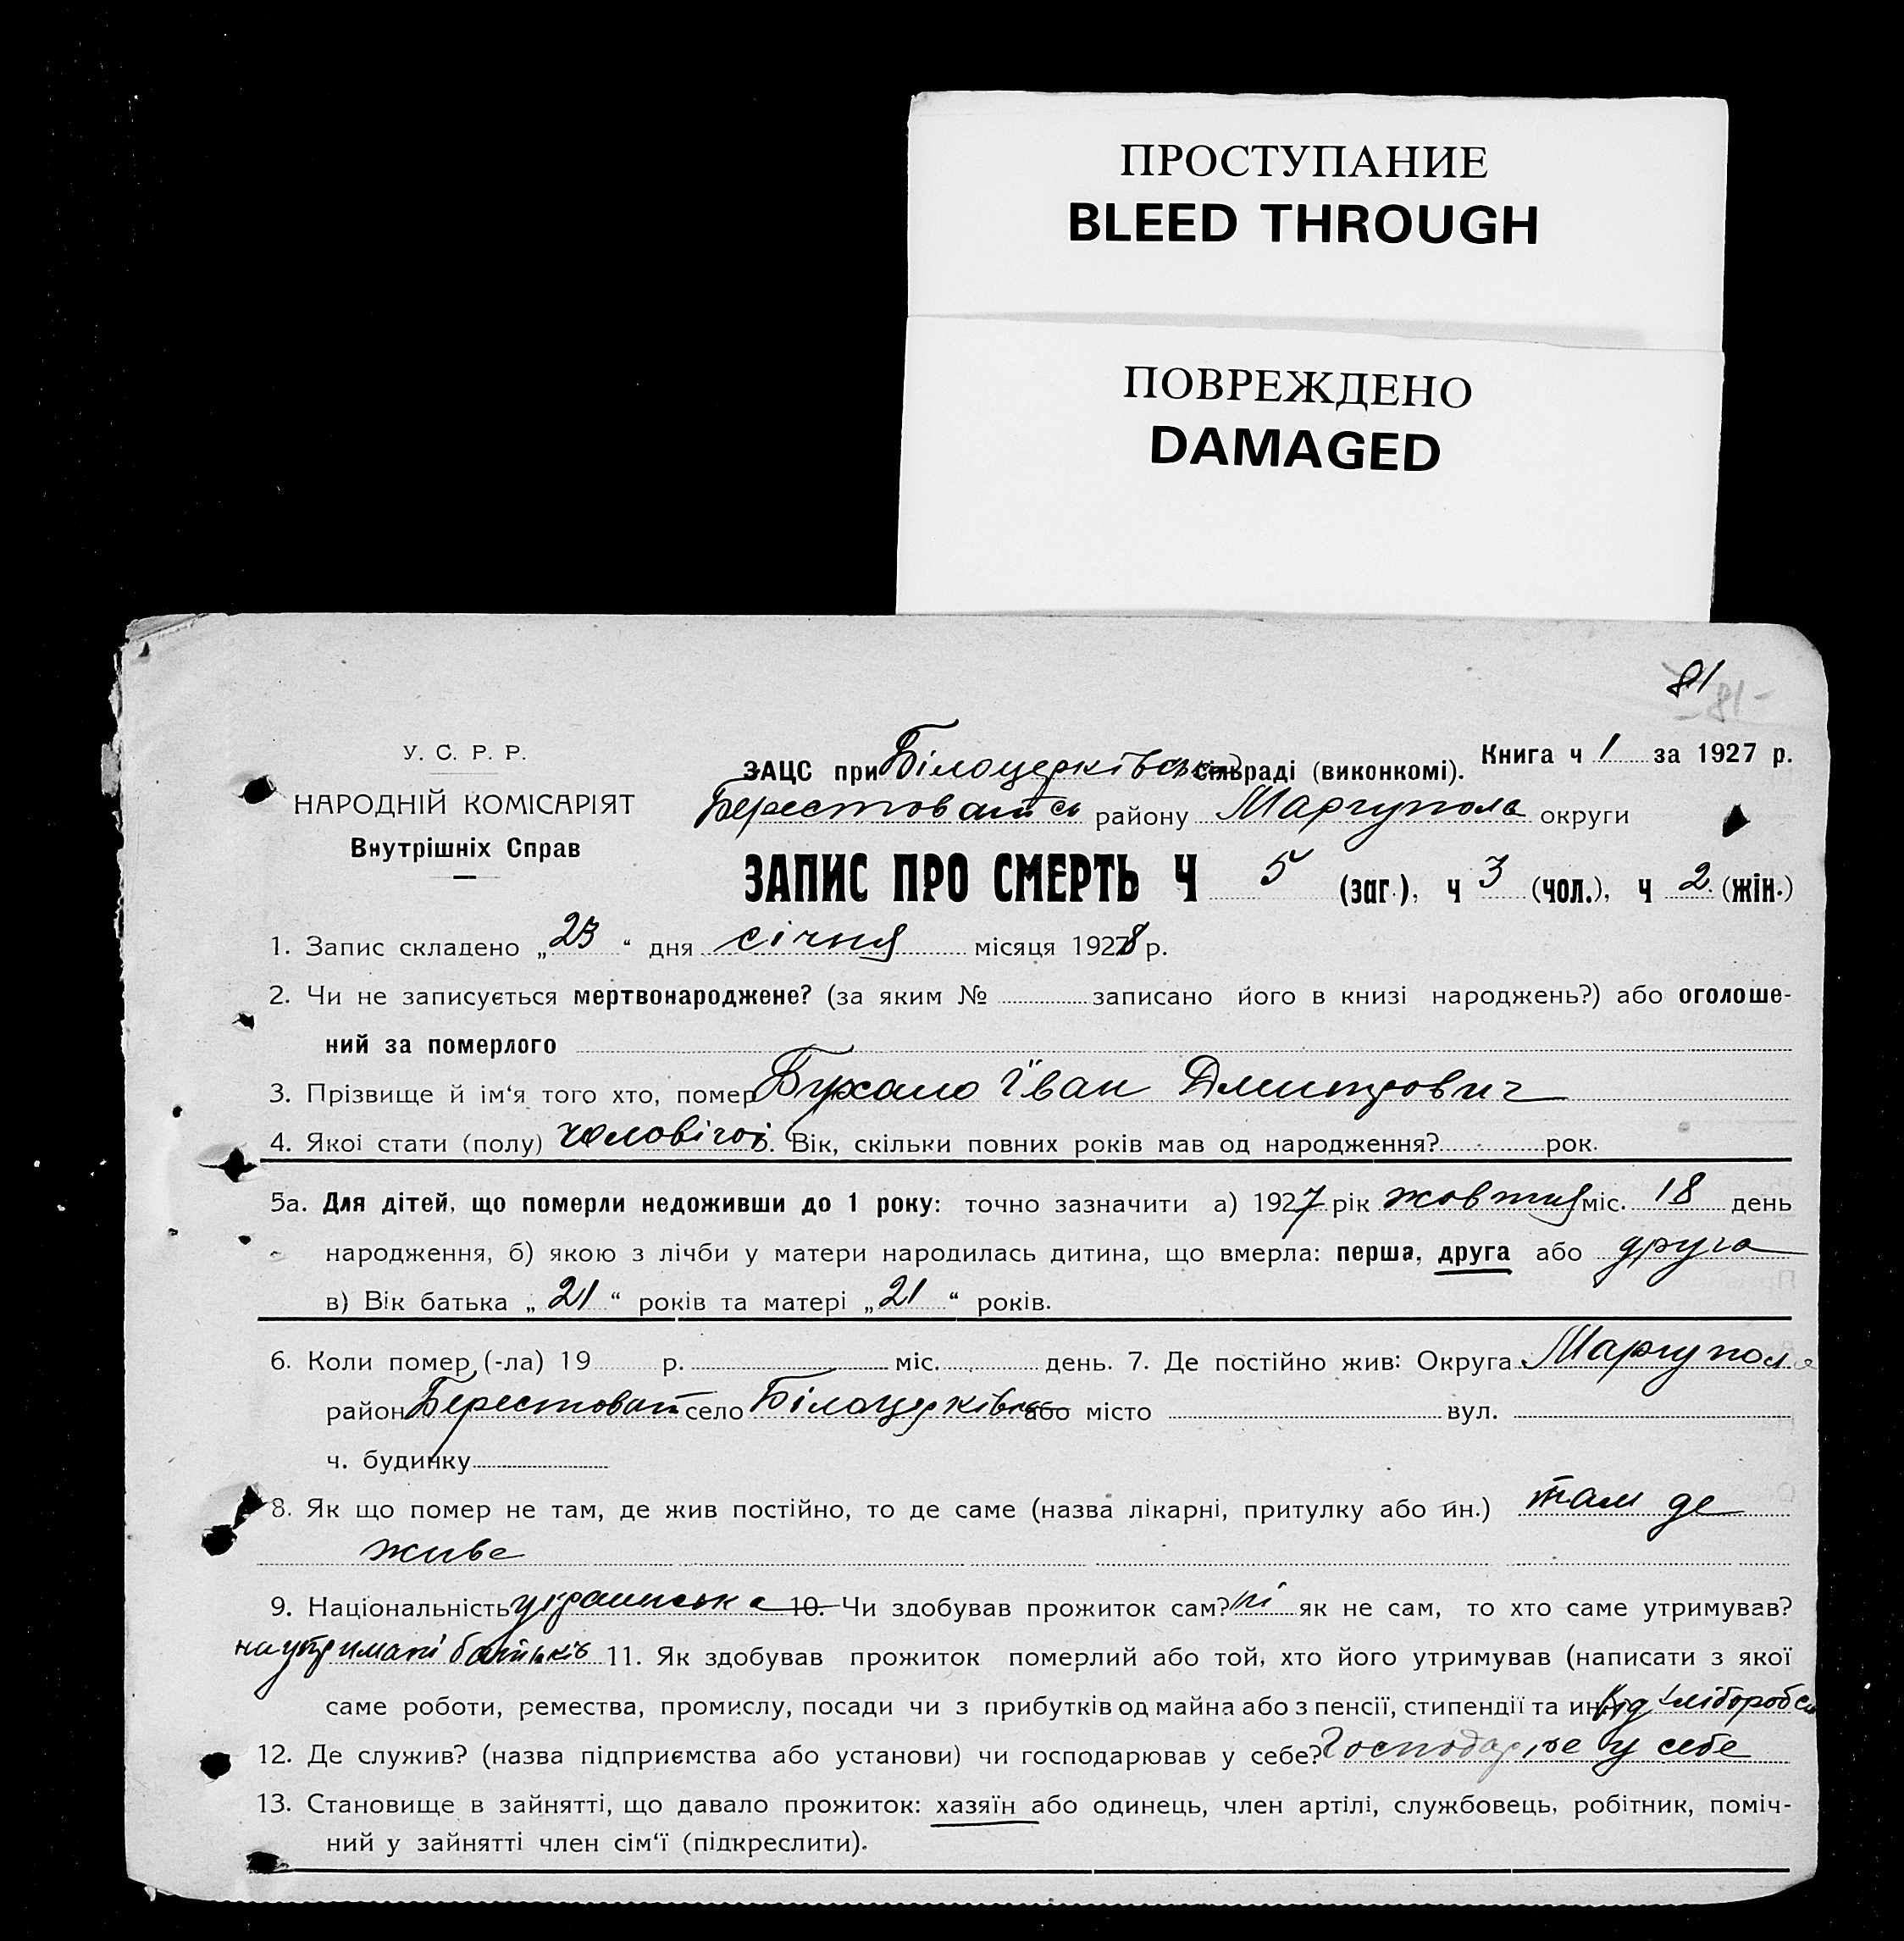 ПРОСТУПАНИЕ
BLEED THROUGH
ПОВРЕЖДЕНО
DAMAGED
81
81
У. С. Р. Р.
НАРОДНІЙ КОМІСАРІЯТ
Внутрішніх Справ
ЗАЦС при Білоцерківськ сільраді (виконкомі). Книга ч 1 за 1927 р.
Берестоватсь району Маріуполь округи
ЗАПИС ПРО СМЕРТЬ Ч 5 (заг.), ч 3 (чол.), ч 2 (жін.)
1. Запис складено „23“ дня січня місяця 1928 р.
2. Чи не записується мертвонароджене? (за яким № записано його в книзі народжень?) або оголоше-
ний за померлого
3. Прізвище й ім‘я того хто, помер Іван Дмитрович
4. Якої стати (полу) чоловічої 5. Вік, скільки повних років мав од народження? рок.
5а. Для дітей, що померли недоживши до 1 року: точно зазначити а) 1927 рік жовтня міс. 18 день
народження, б) якою з лічби у матери народилась дитина, що вмерла: перша, друга або друга
в) Вік батька „21“ років та матері „21“ років.
6. Коли помер (-ла) 19 р. міс. день. 7. Де постійно жив: Округа Маріуполя
район Берестоват село Білоцерківка або місто вул.
ч. будинку
8. Як що помер не там, де жив постійно, то де саме (назва лікарні, притулку або ин.) там де
живе
9. Національність українська 10. Чи здобував прожиток сам? ні як не сам, то хто саме утримував?
на утримані батьків 11. Як здобував прожиток померлий або той, хто його утримував (написати з якої
саме роботи, ремества, промислу, посади чи з прибутків од майна або з пенсії, стипендії та ин. від хліборобс
12. Де служив? (назва підприємства або установи) чи господарював у себе? Господарює у себе
13. Становище в зайнятті, що давало прожиток: хазяїн або одинець, член артілі, службовець, робітник, поміч-
ний у зайнятті член сім‘ї (підкреслити).